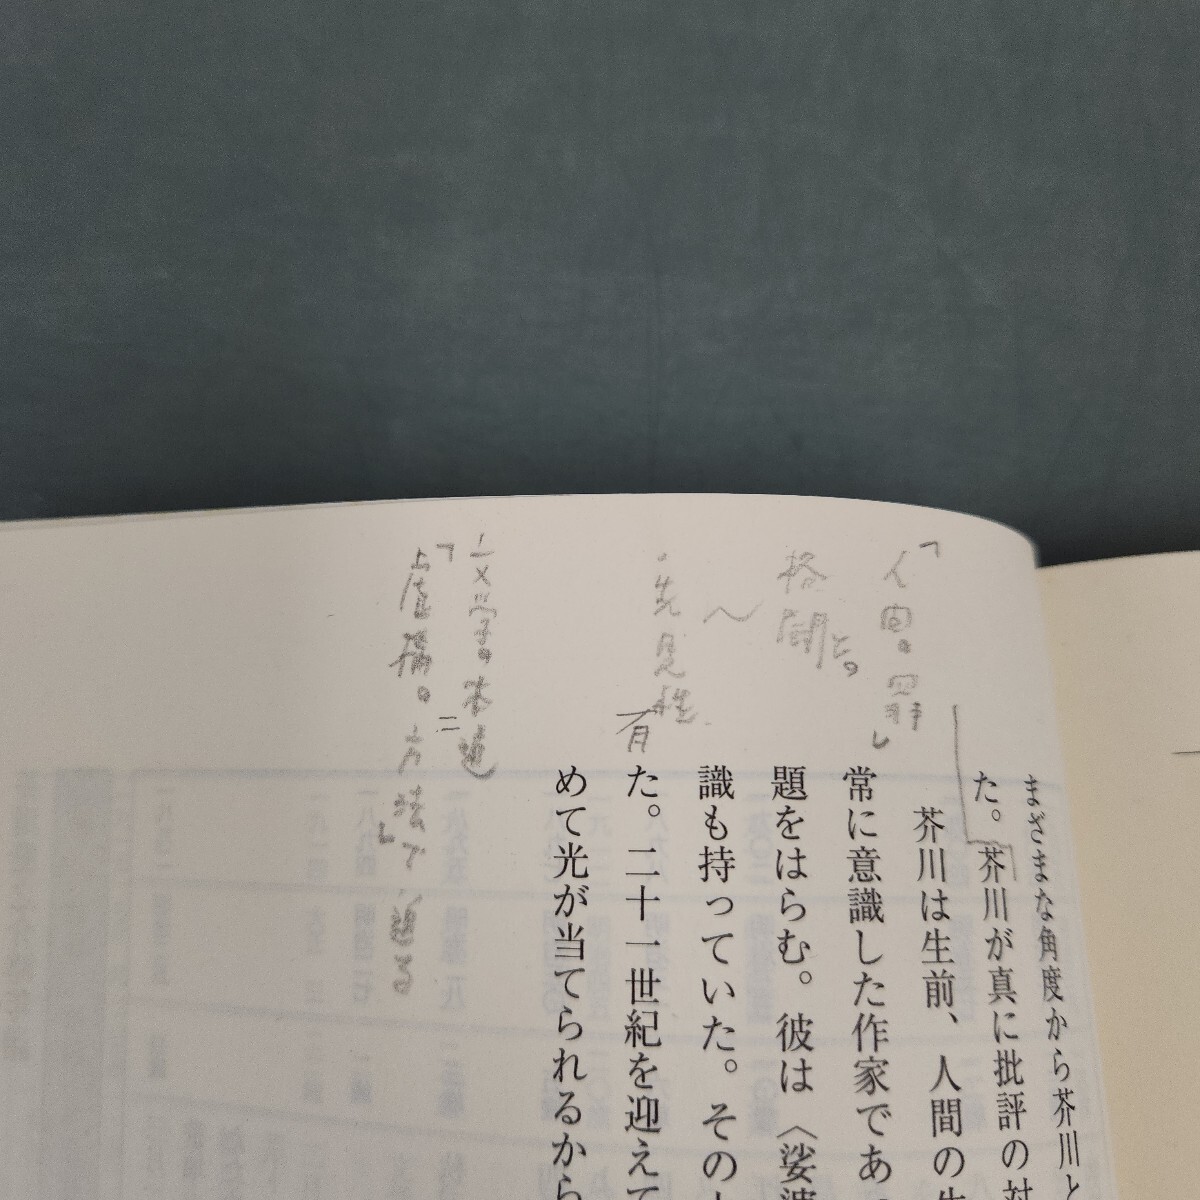 「人間の罪」
格闘と。
〜
・先見性
有
文学の本道
=
「虚構の方法」で迫る
まざまな角度から芥川と
た。芥川が真に批評の対
芥川は生前、人間の生
常に意識した作家であ
題をはらむ。彼は〈娑婆
識も持っていた。その
た。二十一世紀を迎えて
めて光が当てられるから